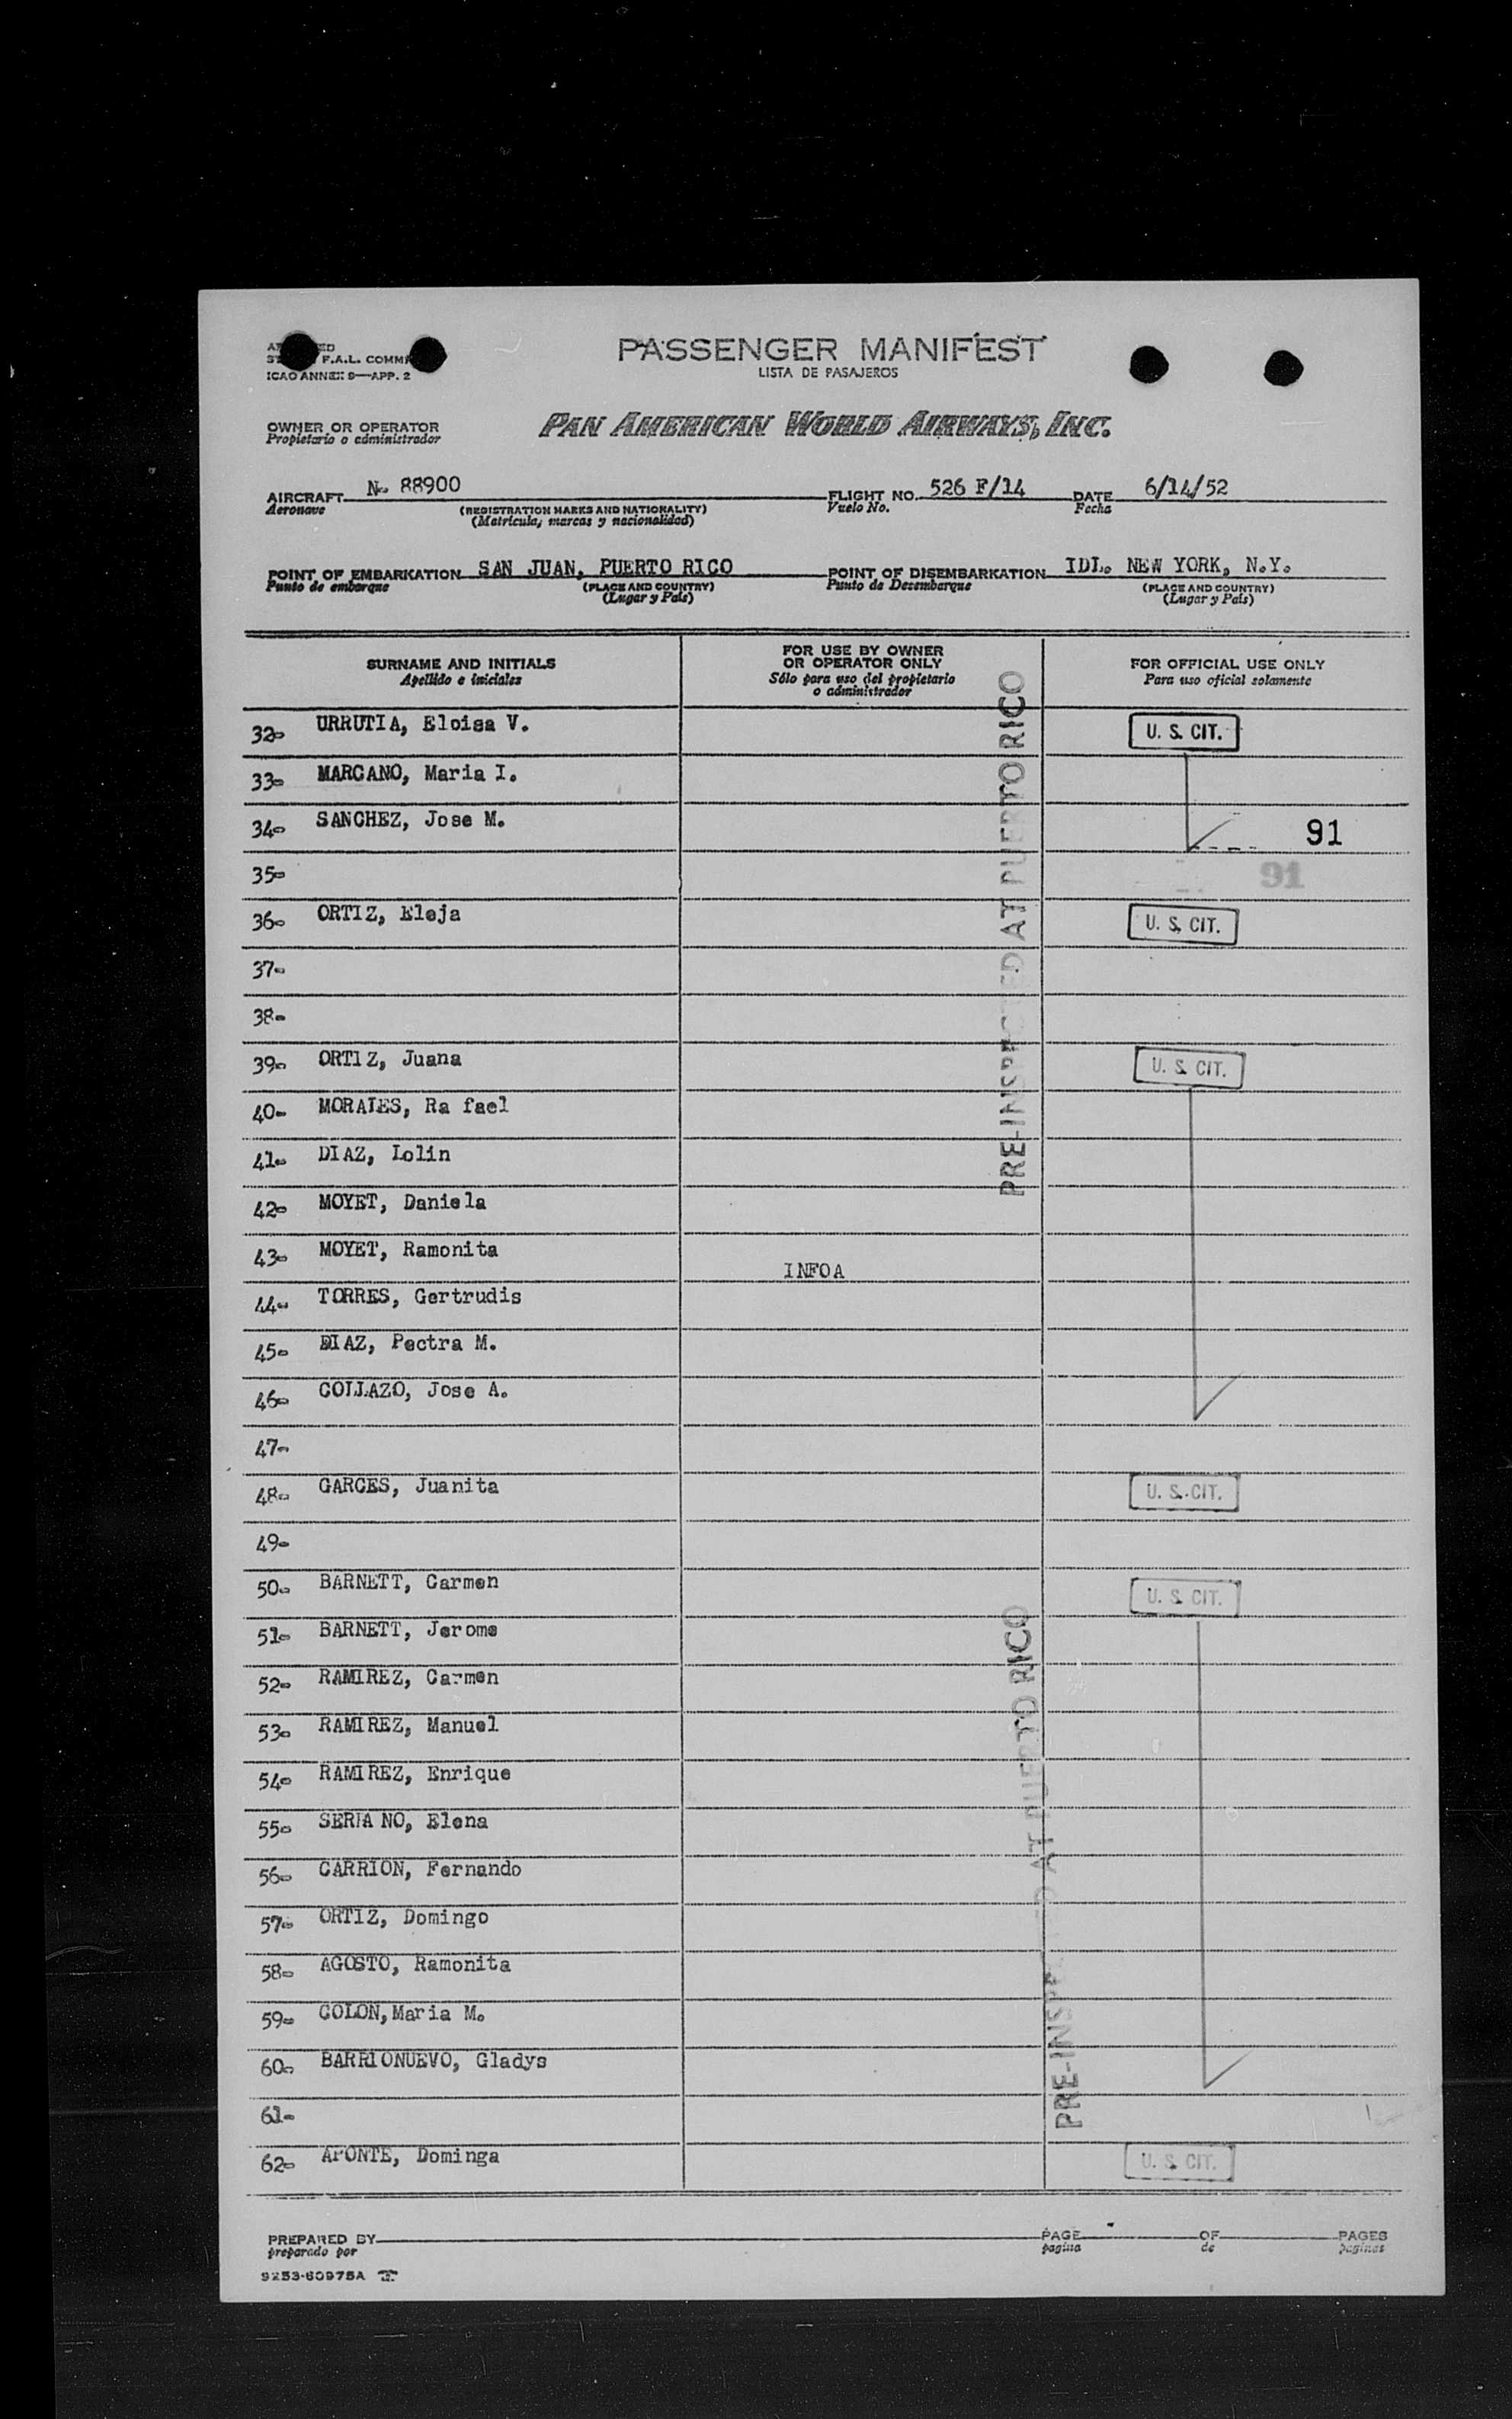 PASSENGER MANIFEST
LISTA DE PASAJEROS
F.A.L. COMM
ICAO ANNEX 9—APP. 2
OWNER OR OPERATOR
Propietario o administrador
PAN AMERICAN WORLD AIRWAYS, INC.
AIRCRAFT N. 88900
Aeronave
(REGISTRATION MARKS AND NATIONALITY)
(Matrícula, marcas y nacionalidad)
FLIGHT NO. 526 F/14
Vuelo No.
DATE 6/14/52
Fecha
POINT OF EMBARKATION SAN JUAN, PUERTO RICO
Punto de embarque
(PLACE AND COUNTRY)
(Lugar y País)
POINT OF DISEMBARKATION IDL. NEW YORK, N.Y.
Punto de Desembarque
(PLACE AND COUNTRY)
(Lugar y País)
SURNAME AND INITIALS
Apellido e iniciales
FOR USE BY OWNER
OR OPERATOR ONLY
Sólo para uso del propietario
o administrador
FOR OFFICIAL USE ONLY
Para uso oficial solamente
32- URRUTIA, Eloisa V. U. S. CIT.
33- MARCANO, Maria I.
34- SANCHEZ, Jose M. 91
35- 91
36- ORTIZ, Eleja U. S. CIT.
37-
38-
39- ORTIZ, Juana U. S. CIT.
40- MORALES, Ra fael
41- DIAZ, Lolin
42- MOYET, Daniela
43- MOYET, Ramonita
INFOA
44- TORRES, Gertrudis
45- DIAZ, Pectra M.
46- COLLAZO, Jose A.
47-
48- GARCES, Juanita U. S. CIT.
49-
50- BARNETT, Carmen U. S. CIT.
51- BARNETT, Jerome
52- RAMIREZ, Carmen
53- RAMIREZ, Manuel
54- RAMIREZ, Enrique
55- SERIA NO, Elena
56- CARRION, Fernando
57- ORTIZ, Domingo
58- AGOSTO, Ramonita
59- COLON,Maria M.
60- BARRIONUEVO, Gladys
61-
62- APONTE, Dominga U. S. CIT.
PRE-INSPECTED AT PUERTO RICO
PRE-INSPE D AT PUERTO RICO
PREPARED BY
preparado por
PAGE OF PAGES
pagina de paginas
9253-60975A